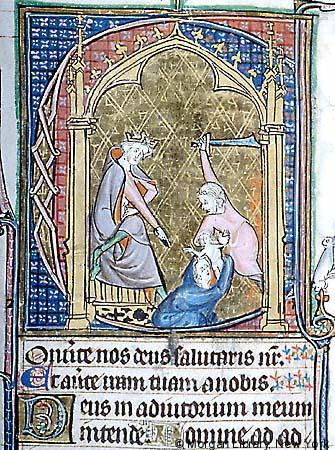 Conu͛te nos deus salutaris nr̅.
Et au͛te iram tuam a nobis.
Deus in adiutorium meum
intende. Domine ad ad
© Morgan Library, New York